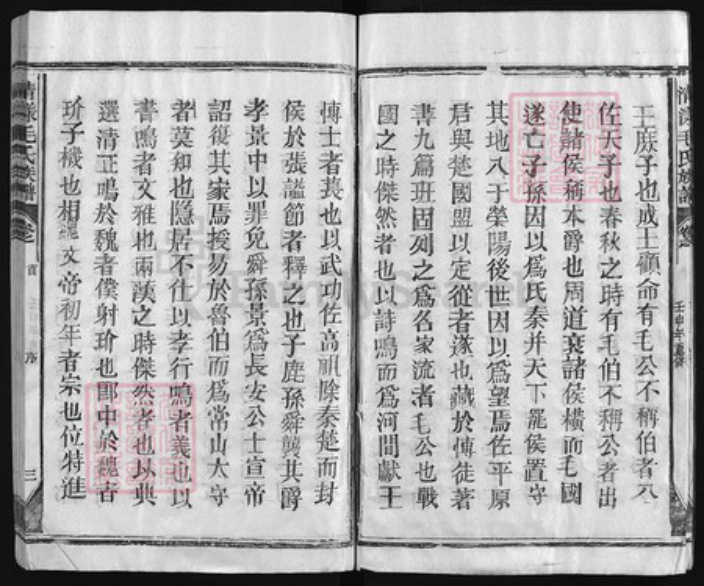 王庶子也成王顧命有毛公不稱伯者入
佐天子也春秋之時有毛伯不稱公者出
使諸侯稱本爵也周道衰諸侯橫而毛國
遂亡子孫因以爲氏秦并天下罷侯置守
其地入于滎陽後世因以爲望焉佐平原
君與楚國盟以定從者遂也藏於博徒著
書九篇班固列之爲名家流者毛公也戰
國之時傑然者也以詩鳴而爲河間獻王
博士者萇也以武功佐高祖除秦楚而封
侯於張謚節者釋之也子鹿孫舜襲其爵
孝景中以罪免舜孫景爲長安公士宣帝
詔復其家焉授易於魯伯而爲常山太守
者莫如也隱居不仕以孝行鳴者義也以
書鳴者文雅也兩漢之時傑然者也以典
選清正鳴於魏者僕射玠也郎中於魏者
玠子機也相 文帝初年者宗也位特進
清漾毛氏族譜
卷之
首
序
三
清漾毛氏族譜
卷之
FamilySearch